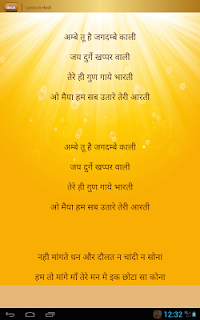 Back
Lyrics in Hindi
अम्बे तू है जगदम्बे काली
जय दुर्गे खप्पर वाली
तेरे ही गुण गाये भारती
ओ मैया हम सब उतारे तेरी आरती
अम्बे तू है जगदम्बे काली
जय दुर्गे खप्पर वाली
तेरे ही गुण गाये भारती
ओ मैया हम सब उतारे तेरी आरती
नही मांगते धन और दौलत न चांदी न सोना
हम तो मांगे माँ तेरे मन मे इक छोटा सा कोना
12:32